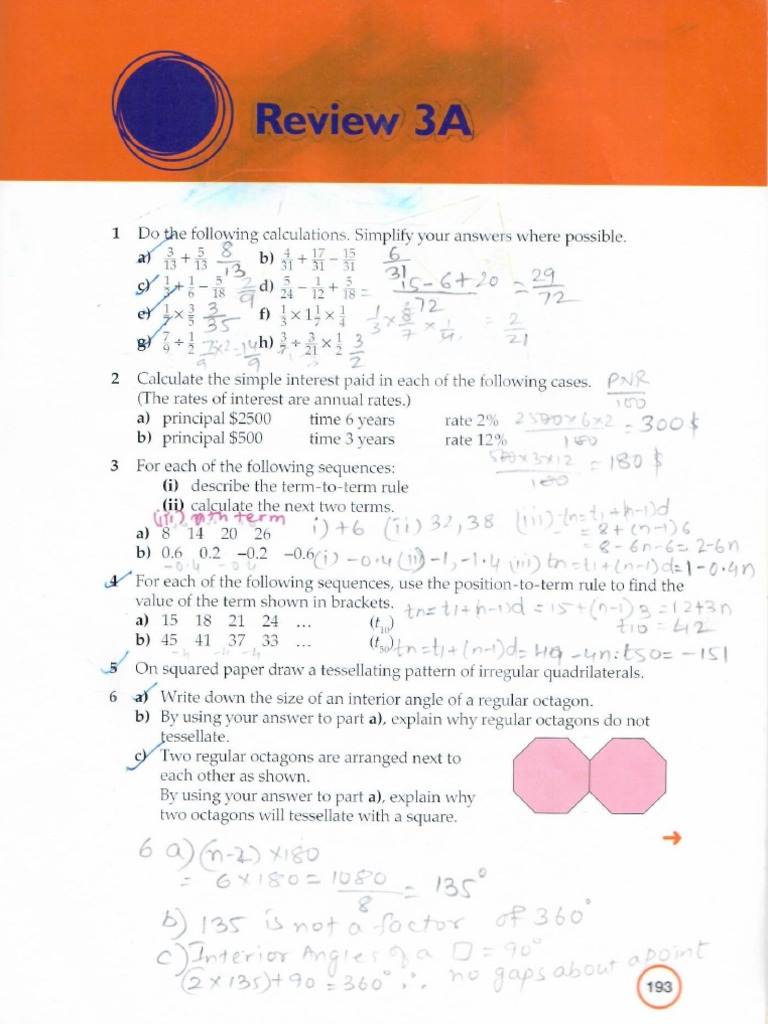 Review 3A
1 Do the following calculations. Simplify your answers where possible.
a) 3/13 + 5/13 8/13 b) 4/31 + 17/31 − 15/31 6/31
c) 1/3 + 1/6 − 5/18 2/9 d) 5/24 − 1/12 + 5/18 = 15-6+20/72 = 29/72
e) 1/7 × 3/5 3/35 f) 1/3 × 1 1/7 × 1/4 1/3 × 8/7 × 1/4 = 2/21
g) 7/9 ÷ 1/2 7×2/9 = 14/9 h) 3/7 ÷ 3/21 × 1/2 3/2
2 Calculate the simple interest paid in each of the following cases. PNR/100
(The rates of interest are annual rates.)
a) principal $2500 time 6 years rate 2% 2500×6×2/100 = 300 $
b) principal $500 time 3 years rate 12% 500×3×12/100 = 180 $
3 For each of the following sequences:
(i) describe the term-to-term rule
(ii) calculate the next two terms.
(iii) nth term
a) 8 14 20 26 i) +6 (ii) 32, 38 (iii) tn=t1+(n-1)d
= 8+(n-1)6
= 8-6n-6= 2-6n
b) 0.6 0.2 −0.2 −0.6 (i) -0.4 (ii) -1, -1.4 (iii) tn=t1+(n-1)d=1-0.4n
-0.4 -0.4
4 For each of the following sequences, use the position-to-term rule to find the
value of the term shown in brackets. tn=t1+(n-1)d = 15+(n-1)3 = 12+3n
a) 15 18 21 24 ... (t10) t10 = 42
b) 45 41 37 33 ... (t50) tn=t1+(n-1)d= 49-4n: t50= -151
-4 -4 -4
5 On squared paper draw a tessellating pattern of irregular quadrilaterals.
6 a) Write down the size of an interior angle of a regular octagon.
b) By using your answer to part a), explain why regular octagons do not
tessellate.
c) Two regular octagons are arranged next to
each other as shown.
By using your answer to part a), explain why
two octagons will tessellate with a square.
6 a) (n-2) ×180
= 6×180 = 1080/8 = 135°
b) 135 is not a factor of 360°
c) Interior Angles of a □ = 90°
(2×135)+90 = 360° ∴ no gaps about a point
193